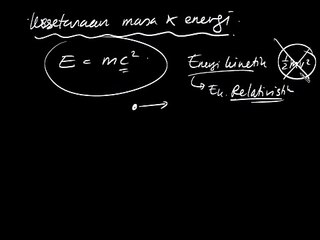 kesetaraan masa & energi.
E = mc².
Energi kinetik
½mv²
Ek. Relativistik